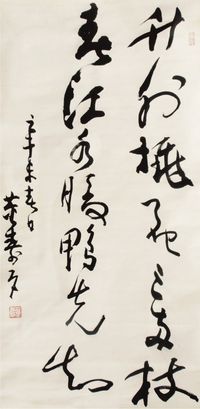 竹外桃花三两枝
春江水暖鸭先知
辛未春日
董寿平